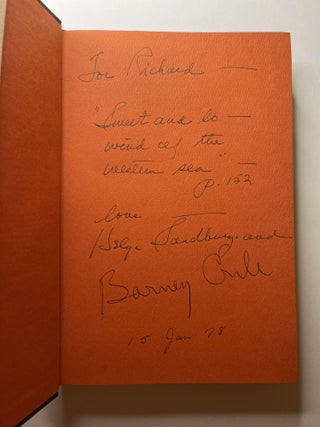 For Richard —
"Sweet and lo —
wind of the
western sea" —
p. 152
love —
Helga Sandburg and
Barney Crile
15 Jan 78